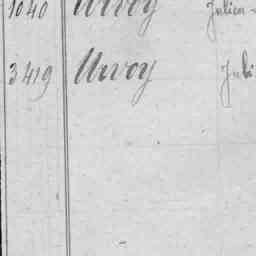 1040 Urvoy Julien
3419 Urvoy Juli